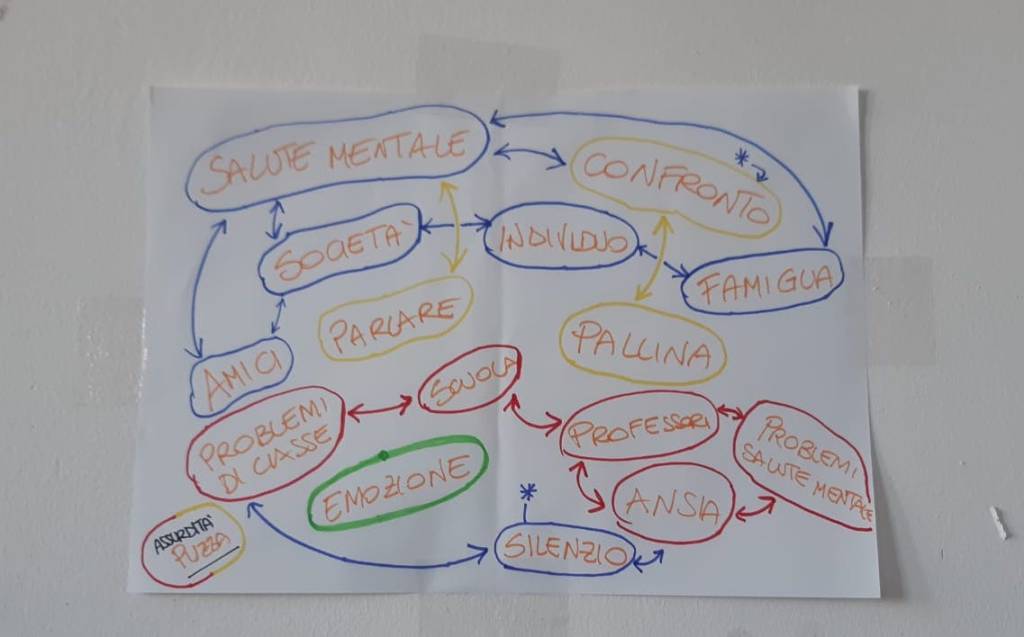 SALUTE MENTALE
CONFRONTO
*
SOCIETÀ
INDIVIDUO
FAMIGLIA
PARLARE
PALLINA
AMICI
SCUOLA
PROBLEMI
DI CLASSE
PROFESSORI
PROBLEMI
SALUTE MENTALE
EMOZIONE
ANSIA
*
ASSURDITÀ
PUZZA
SILENZIO